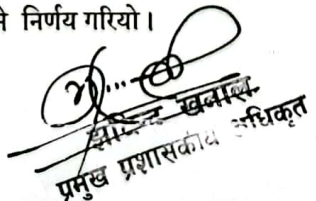 निर्णय गरियो।
खनाल
प्रमुख प्रशासकीय अधिकृत